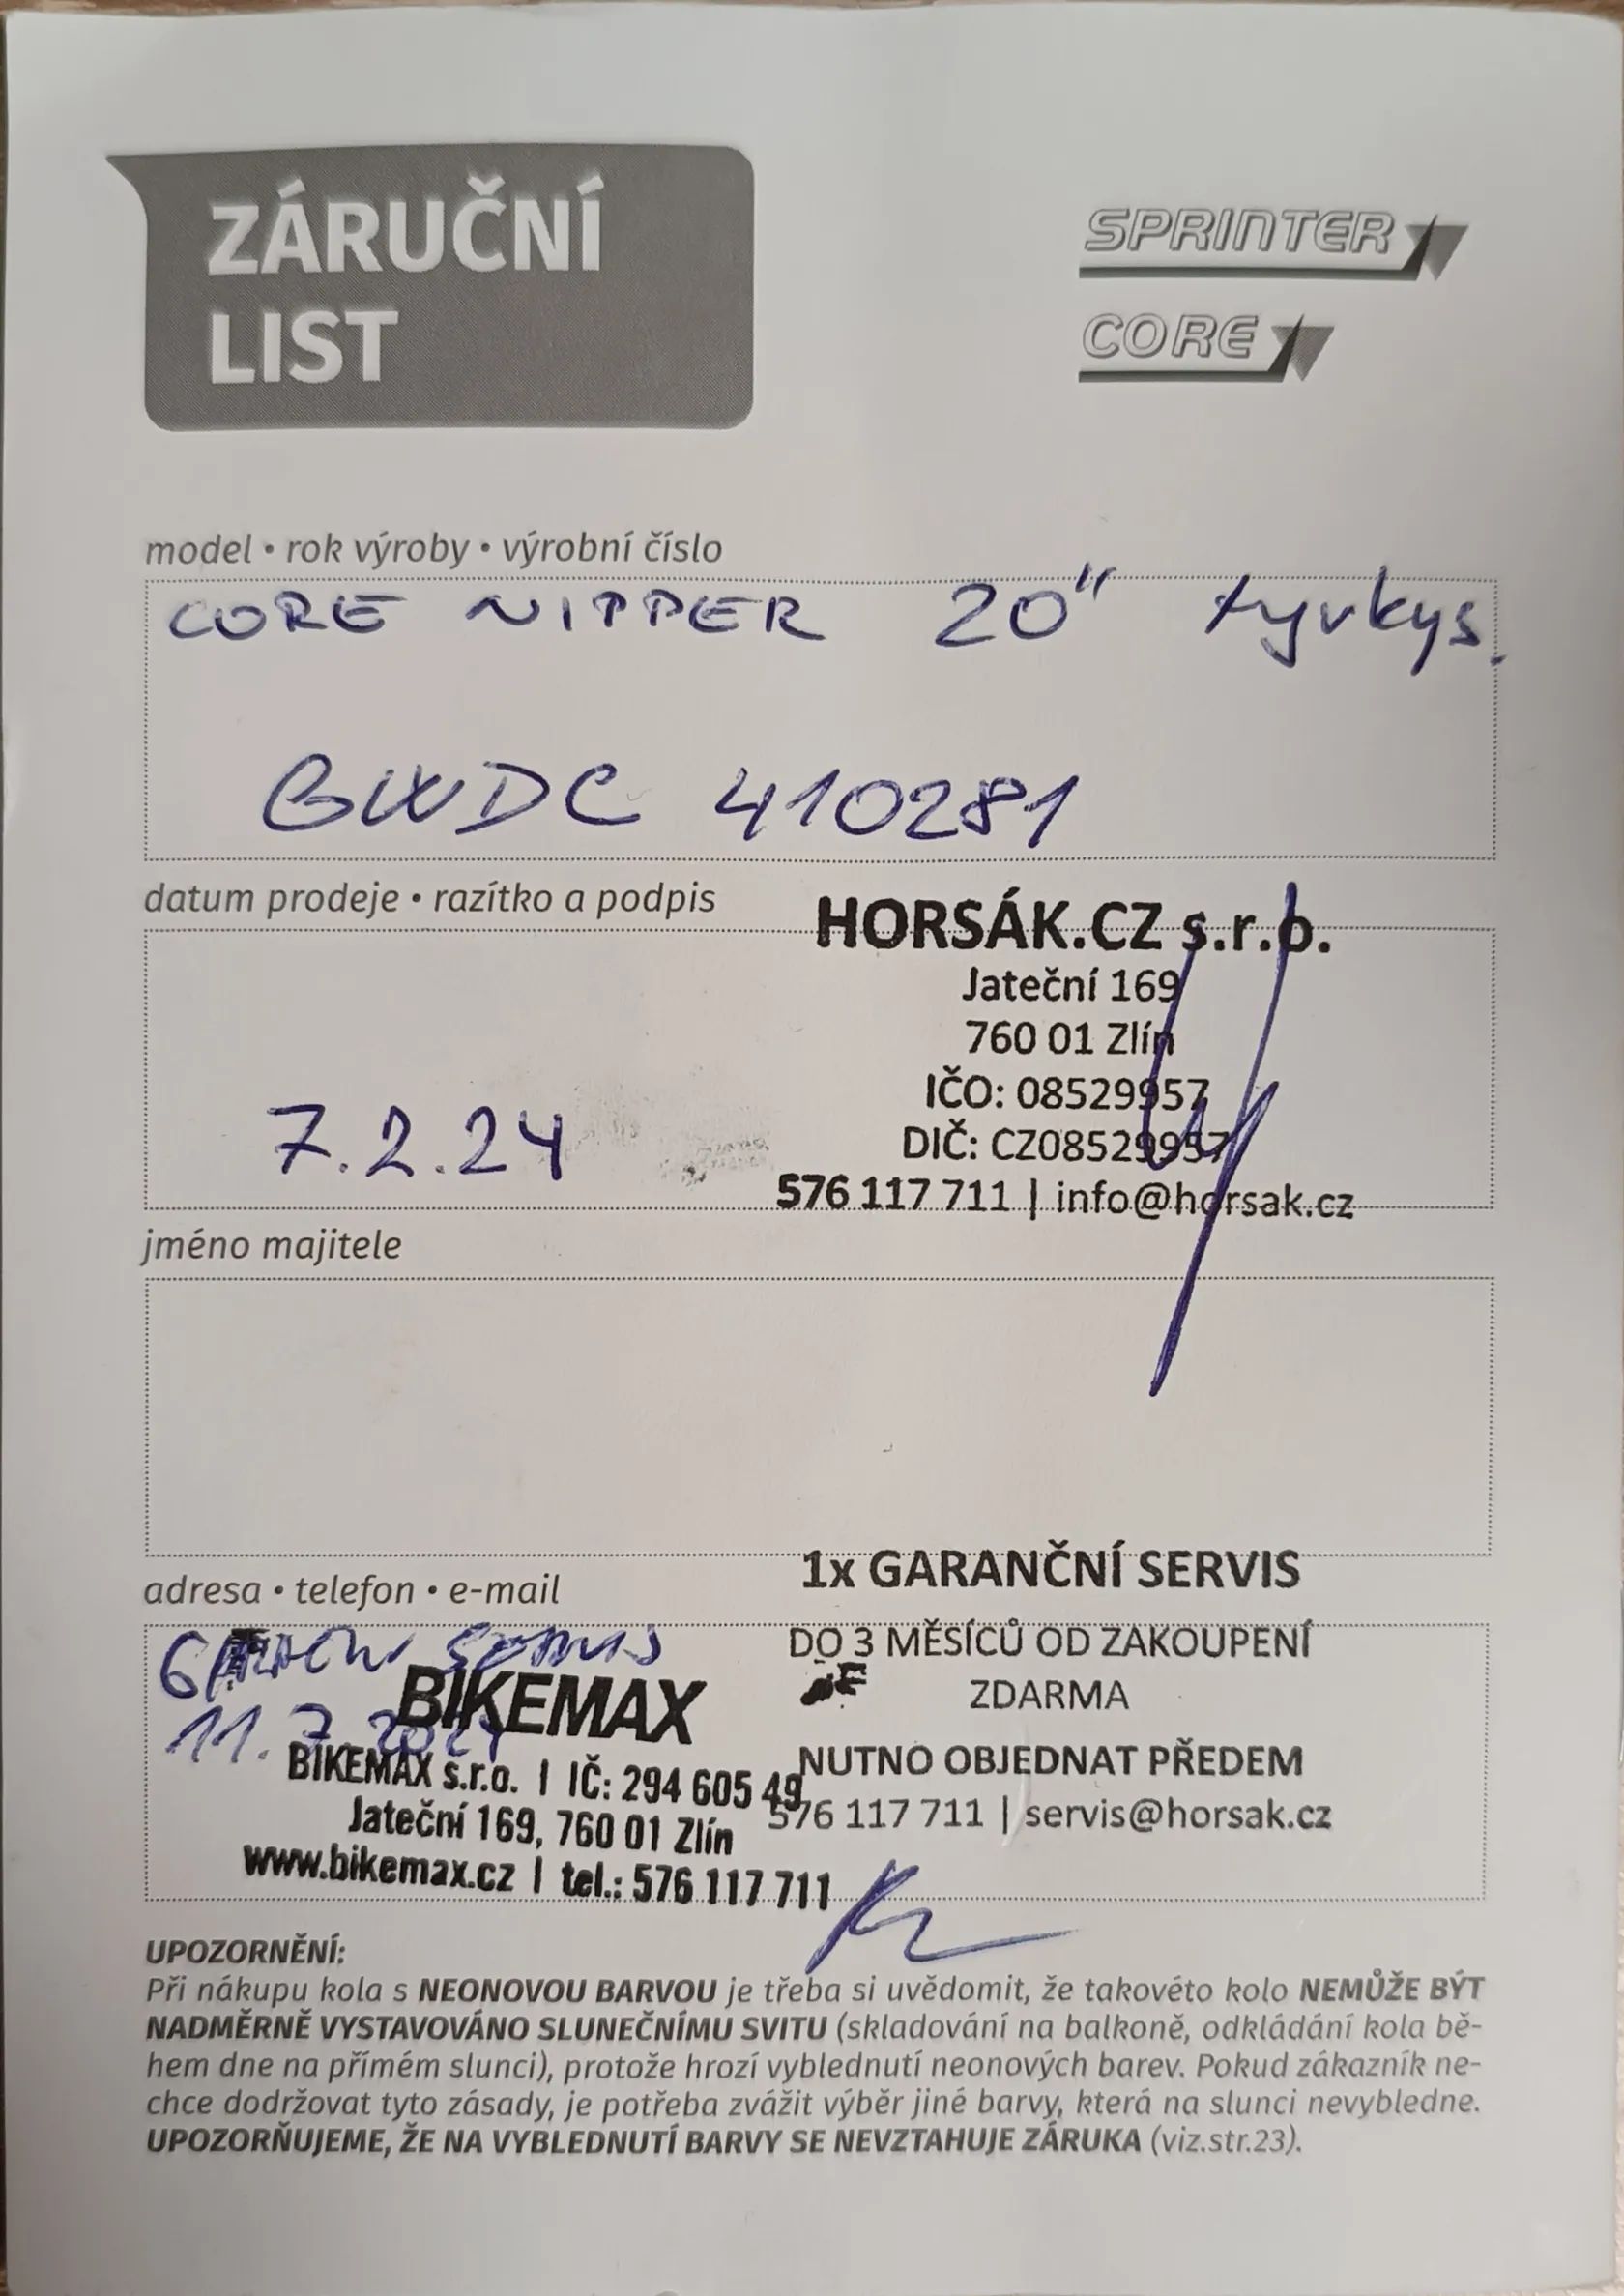 ZÁRUČNÍ
LIST
SPRINTER
CORE
model • rok výroby • výrobní číslo
CORE NIPPER 20" tyrkys.
GWDC 410281
datum prodeje • razítko a podpis
HORSÁK.CZ s.r.o.
Jateční 169
760 01 Zlín
IČO: 08529957
DIČ: CZ08529957
576 117 711 | info@horsak.cz
7.2.24
jméno majitele
1x GARANČNÍ SERVIS
adresa • telefon • e-mail
DO 3 MĚSÍCŮ OD ZAKOUPENÍ
ZDARMA
NUTNO OBJEDNAT PŘEDEM
576 117 711 | servis@horsak.cz
servis
11.7.2024
BIKEMAX
BIKEMAX s.r.o. | IČ: 294 605 49
Jateční 169, 760 01 Zlín
www.bikemax.cz | tel.: 576 117 711
UPOZORNĚNÍ:
Při nákupu kola s NEONOVOU BARVOU je třeba si uvědomit, že takovéto kolo NEMŮŽE BÝT
NADMĚRNĚ VYSTAVOVÁNO SLUNEČNÍMU SVITU (skladování na balkoně, odkládání kola bě-
hem dne na přímém slunci), protože hrozí vyblednutí neonových barev. Pokud zákazník ne-
chce dodržovat tyto zásady, je potřeba zvážit výběr jiné barvy, která na slunci nevybledne.
UPOZORŇUJEME, ŽE NA VYBLEDNUTÍ BARVY SE NEVZTAHUJE ZÁRUKA (viz.str.23).